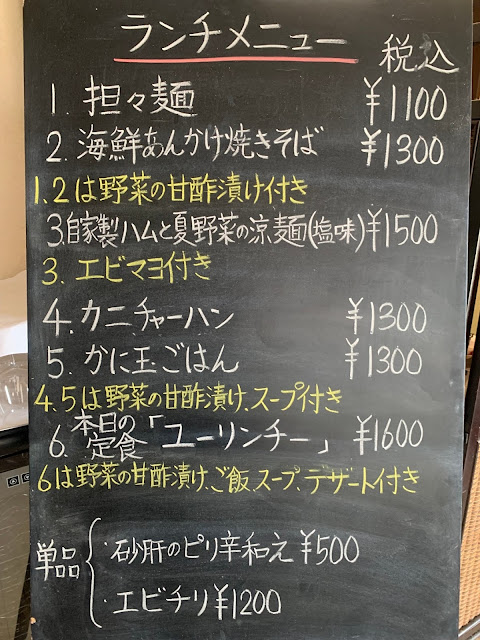 ランチメニュー 税込
1. 担々麺 ¥1100
2. 海鮮あんかけ焼きそば ¥1300
1.2は野菜の甘酢漬け付き
3.自家製ハムと夏野菜の涼麺(塩味)¥1500
3. エビマヨ付き
4. カニチャーハン ¥1300
5. かに玉ごはん ¥1300
4.5は野菜の甘酢漬け、スープ付き
6. 本日の定食「ユーリンチー」 ¥1600
6は野菜の甘酢漬け、ご飯、スープ、デザート付き
単品
・砂肝のピリ辛和え ¥500
・エビチリ ¥1200